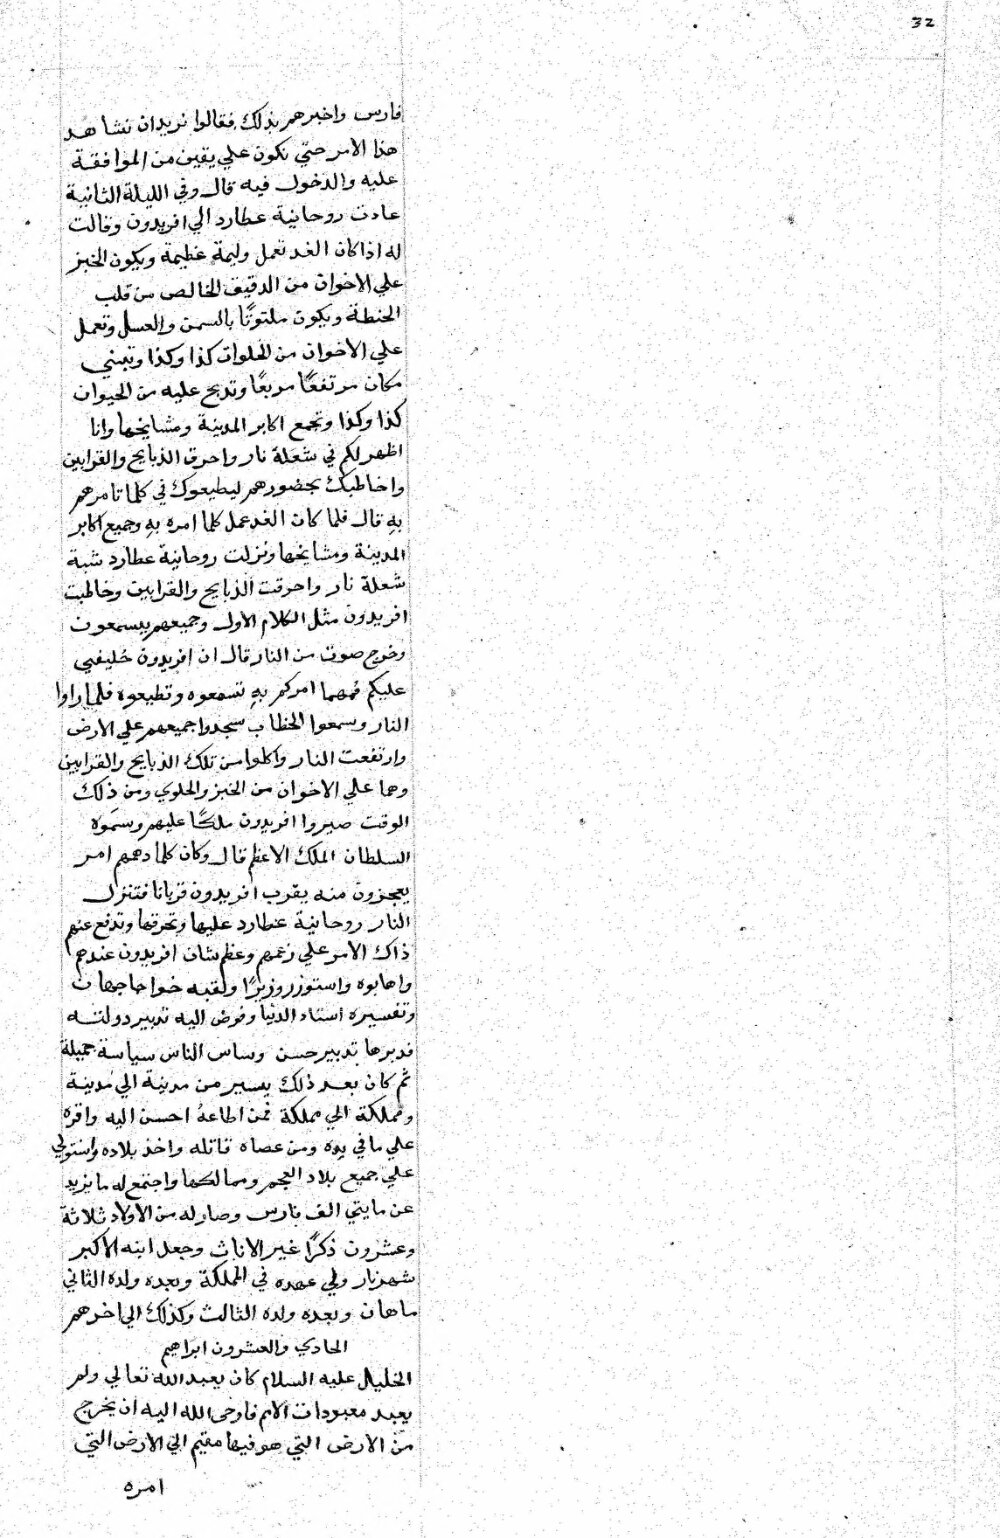 32
فارس واخبرهم بذلك فقالوا نريد ان نشاهد
هذا الامر حتي نكون علي يقين من الموافقة
عليه والدخول فيه قال وفي الليلة الثانية
عادت روحانية عطارد الي افريدون وقالت
له اذا كان الغد تعمل وليمة عظيمة ويكون الخبز
علي الاخوان من الدقيق الخالص من قلب
الحنطة ويكون ملتوتًا بالسمن والعسل وتعمل
علي الاخوان من الحلوات كذا وكذا وتبني
مكان مرتفعًا مربعًا وتدبح عليه من الحيوان
كذا وكذا وتجمع اكابر المدينة ومشايخها وانا
اظهر لكم في شعلة نار واحرق الذبايح والقرابين
واخاطبك بحضورهم ليطيعوك في كلما تامرهم
به قال فلما كان الغد عمل كلما امره به وجميع اكابر
المدينة ومشايخها ونزلت روحانية عطارد شبة
شعلة نار واحرقت الذبايح والقرابين وخاطبت
افريدون مثل الكلام الاول وجميعهم يسمعون
وخرج صوت من النار قال ان افريدون خليفتي
عليكم فمهما امركم به تسمعوه وتطيعوه فلما راوا
النار وسمعوا الخطاب سجدوا جميعهم علي الارض
وارتفعت النار واكلوا من تلك الذبايح والقرابين
وما علي الاخوان من الخبز والحلوي ومن ذلك
الوقت صيروا افريدون ملكًا عليهم وسموه
السلطان الملك الاعظم قال وكان كلما دهمهم امر
يعجزون منه يقرب افريدون قربانا فتنزل
النار روحانية عطارد عليها وتحرقها وتدفع عنهم
ذاك الامر علي زعمهم وعظم شان افريدون عندهم
واهابوه واستوزر وزيرًا ولقبه خواجا جهان
وتفسيره استاد الدنيا وفوض اليه تدبير دولته
فدبرها تدبير حسن وساس الناس سياسة جميلة
ثم كان بعد ذلك يسير من مدينة الي مدينة
ومملكة الي مملكة فمن اطاعه احسن اليه واقره
علي ما في يده ومن عصاه قاتله واخذ بلاده واستولي
علي جميع بلاد العجم وممالكها واجتمع له ما يزيد
عن مايتي الف فارس وصار له من الاولاد ثلاثة
وعشرون ذكرًا غير الاناث وجعل ابنه الاكبر
شهرنار ولي عهده في المملكة وبعده ولده الثاني
ماهان وبعده ولده الثالث وكذلك الي اخرهم
الحادي والعشرون ابراهيم
الخليل عليه السلام كان يعبد الله تعالي ولم
يعبد معبودات الامم فاوحى الله اليه ان يخرج
من الارض التي هو فيها مقيم الي الارض التي
امره